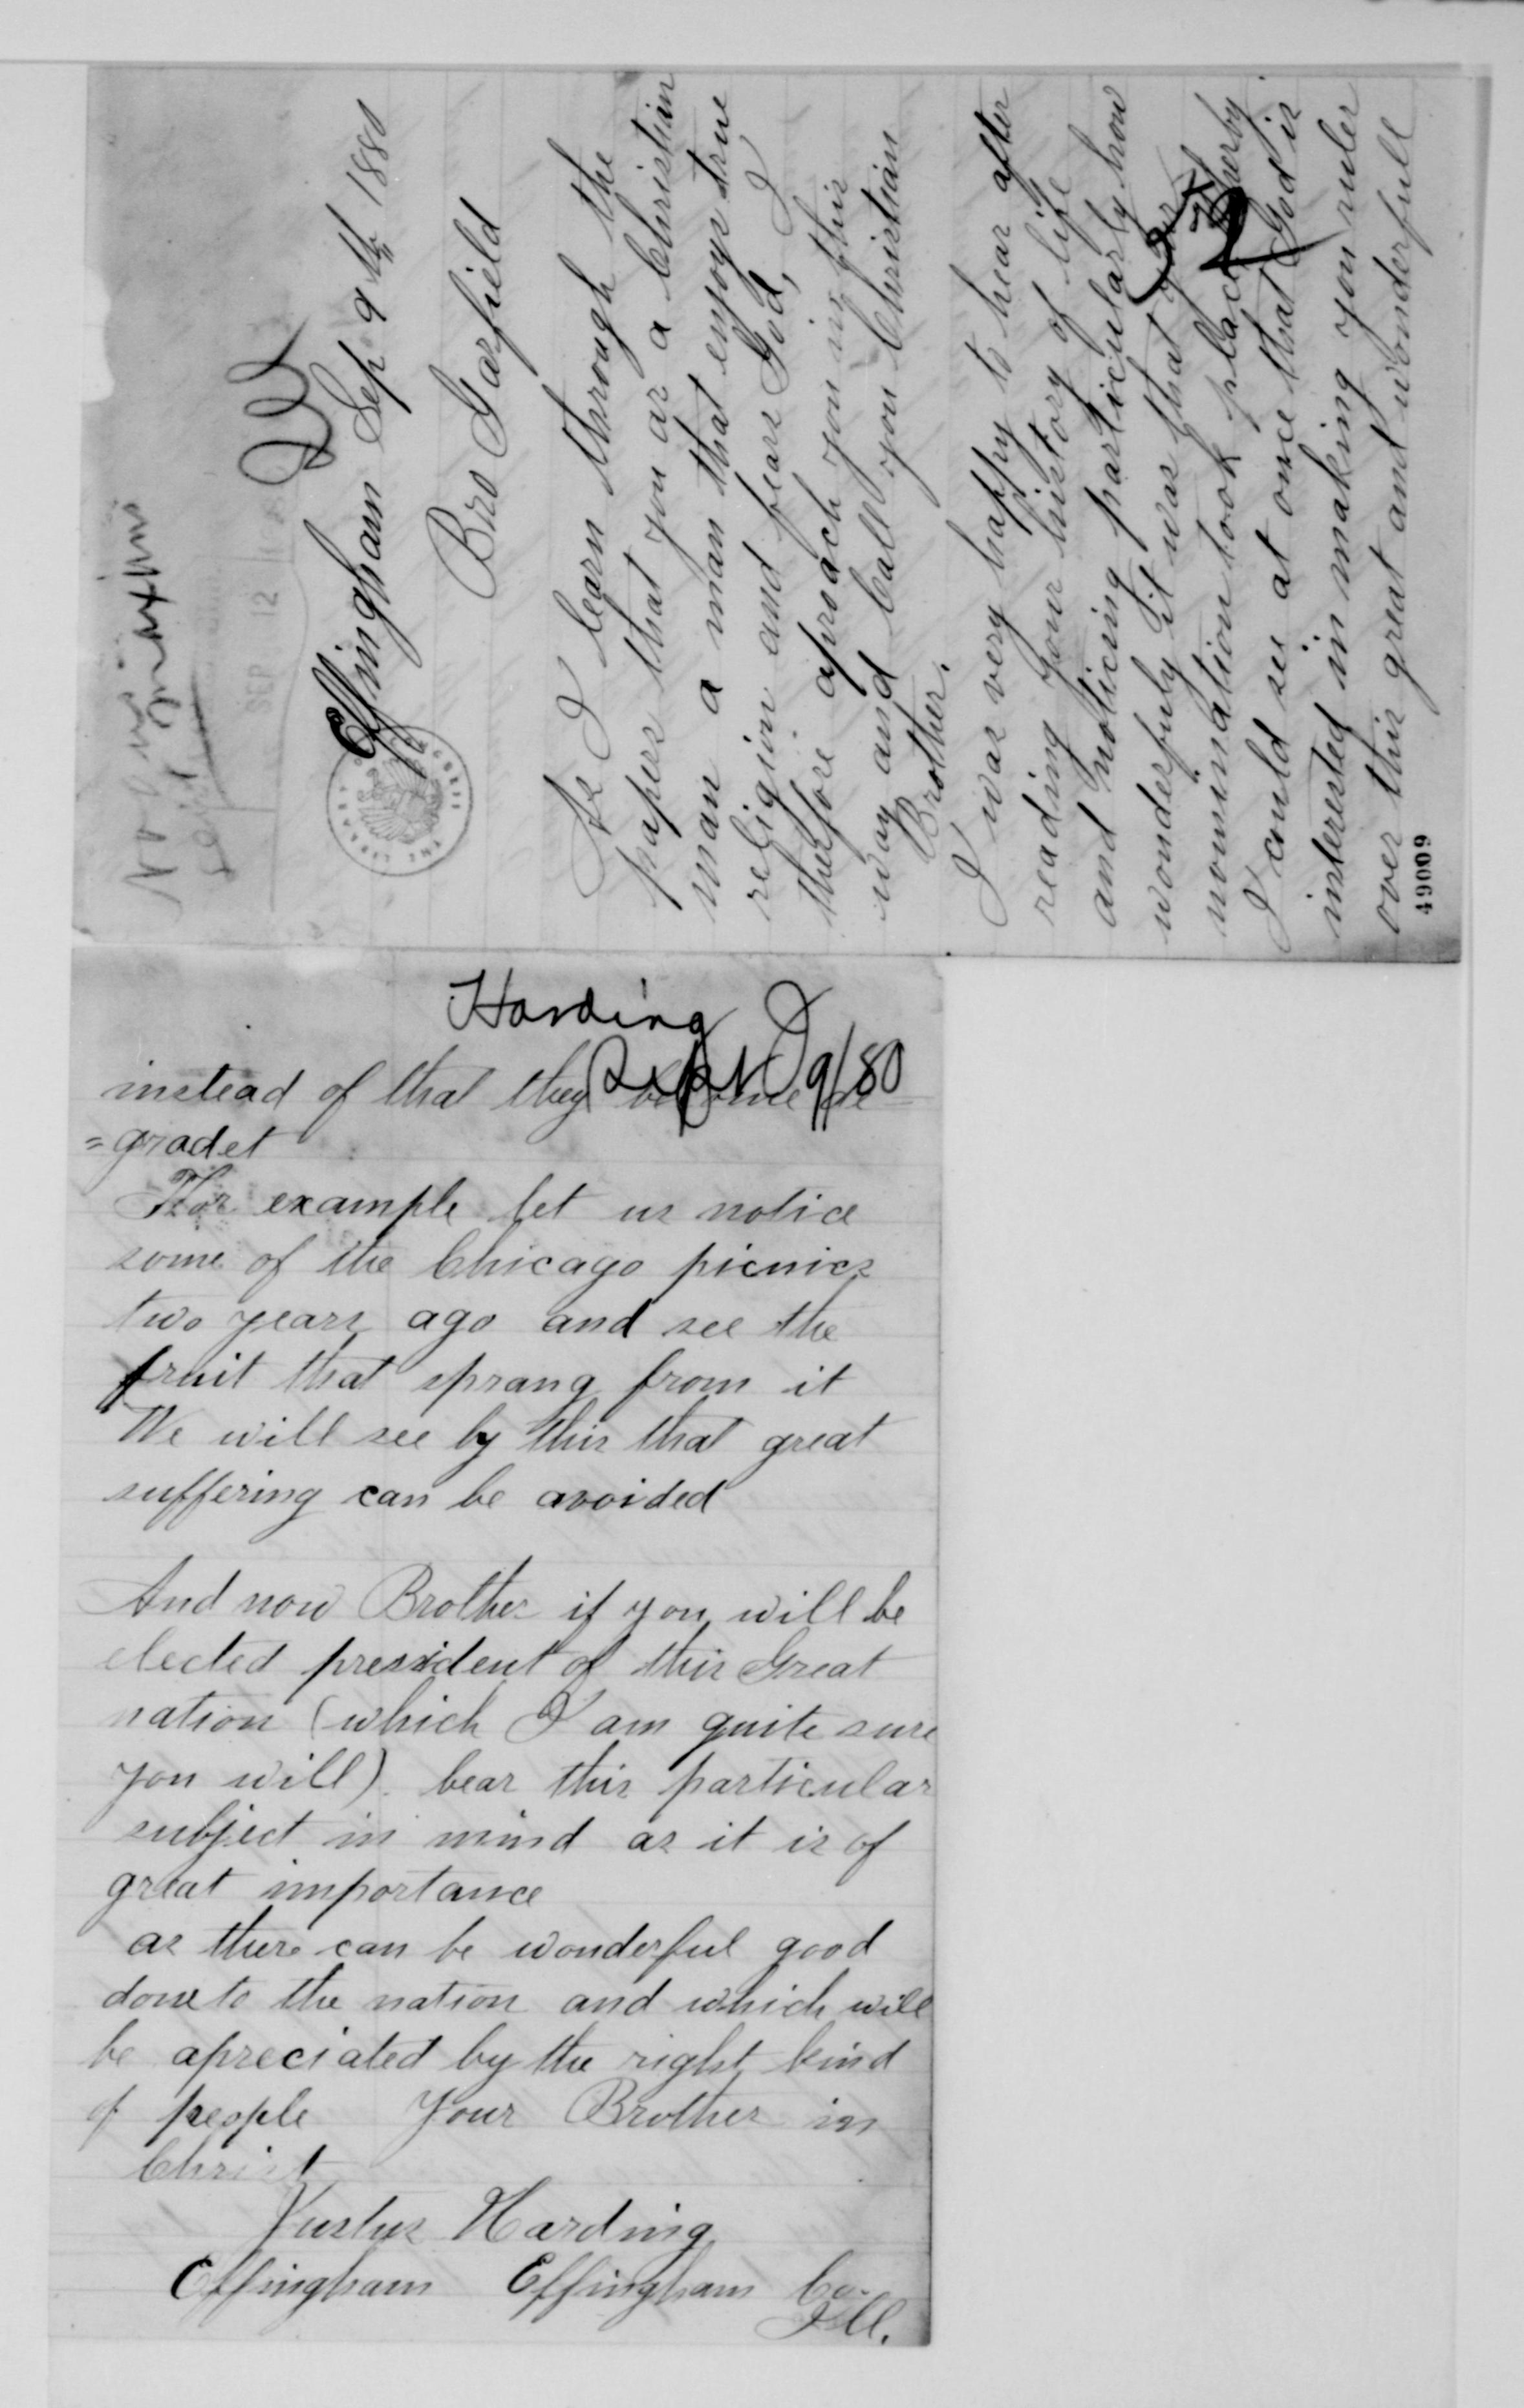 Ill
Effingham Sep 9th 1880
Bro Garfield
As I learn through the
papers that you ar a Christian
man a man that enjoys true
religion and fears God, I
therfore aproach you in this
way and Call you Christian
Brother.
I was very happy to hear after
reading your history of life
and noticing particularly how
wonderfuly it was that your
nomination took place wherby
I could see at once that God is
interested in making you ruler
over this great and wonderfull
49009
Harding J
Sept 9/80
instead of that they become de
=gradet
For example let us notice
some of the Chicago picnics
two years ago and see the
fruit that sprang from it
We will see by this that great
suffering can be avoided
And now Brother if you will be
elected pressident of this Great
nation (which I am quite sure
you will) bear this particular
subject in mind as it is of
great importance
as there can be wonderful good
done to the nation and which will
be apreciated by the right kind
of people Your Brother in
Christ
Justus Harding
Effingham Effingham Co.
Ill.